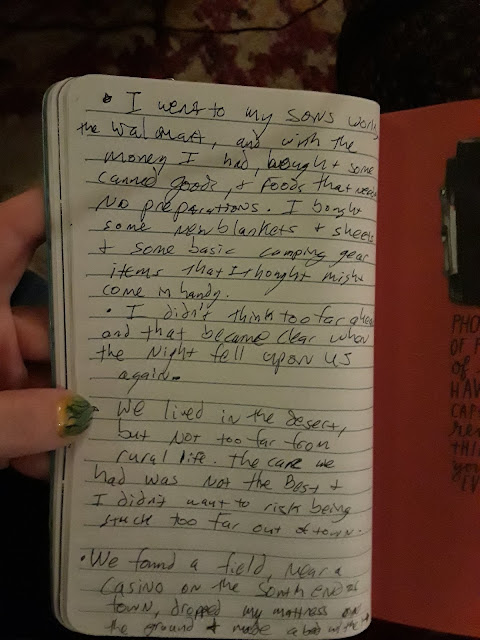 • I went to my sons work,
the Walmart, and with the
money I had, bought some
canned goods, + foods that need
NO preparations. I bought
some new blankets + sheets
+ some basic camping gear
items that I thought might
come in handy.
• I didn't think too far ahea
and that became clear when
the Night fell upon us
again.
• We lived in the desert,
but NOT too far from
rural life. the care we
had was not the Best +
I didn't want to risk being
stuck too far out of town.
• We found a field, near a
Casino on the South end of
town, dropped my mattress on
the ground + made a bed
PHO
OF F
of
HAV
CAP
rea
THI
you
EV